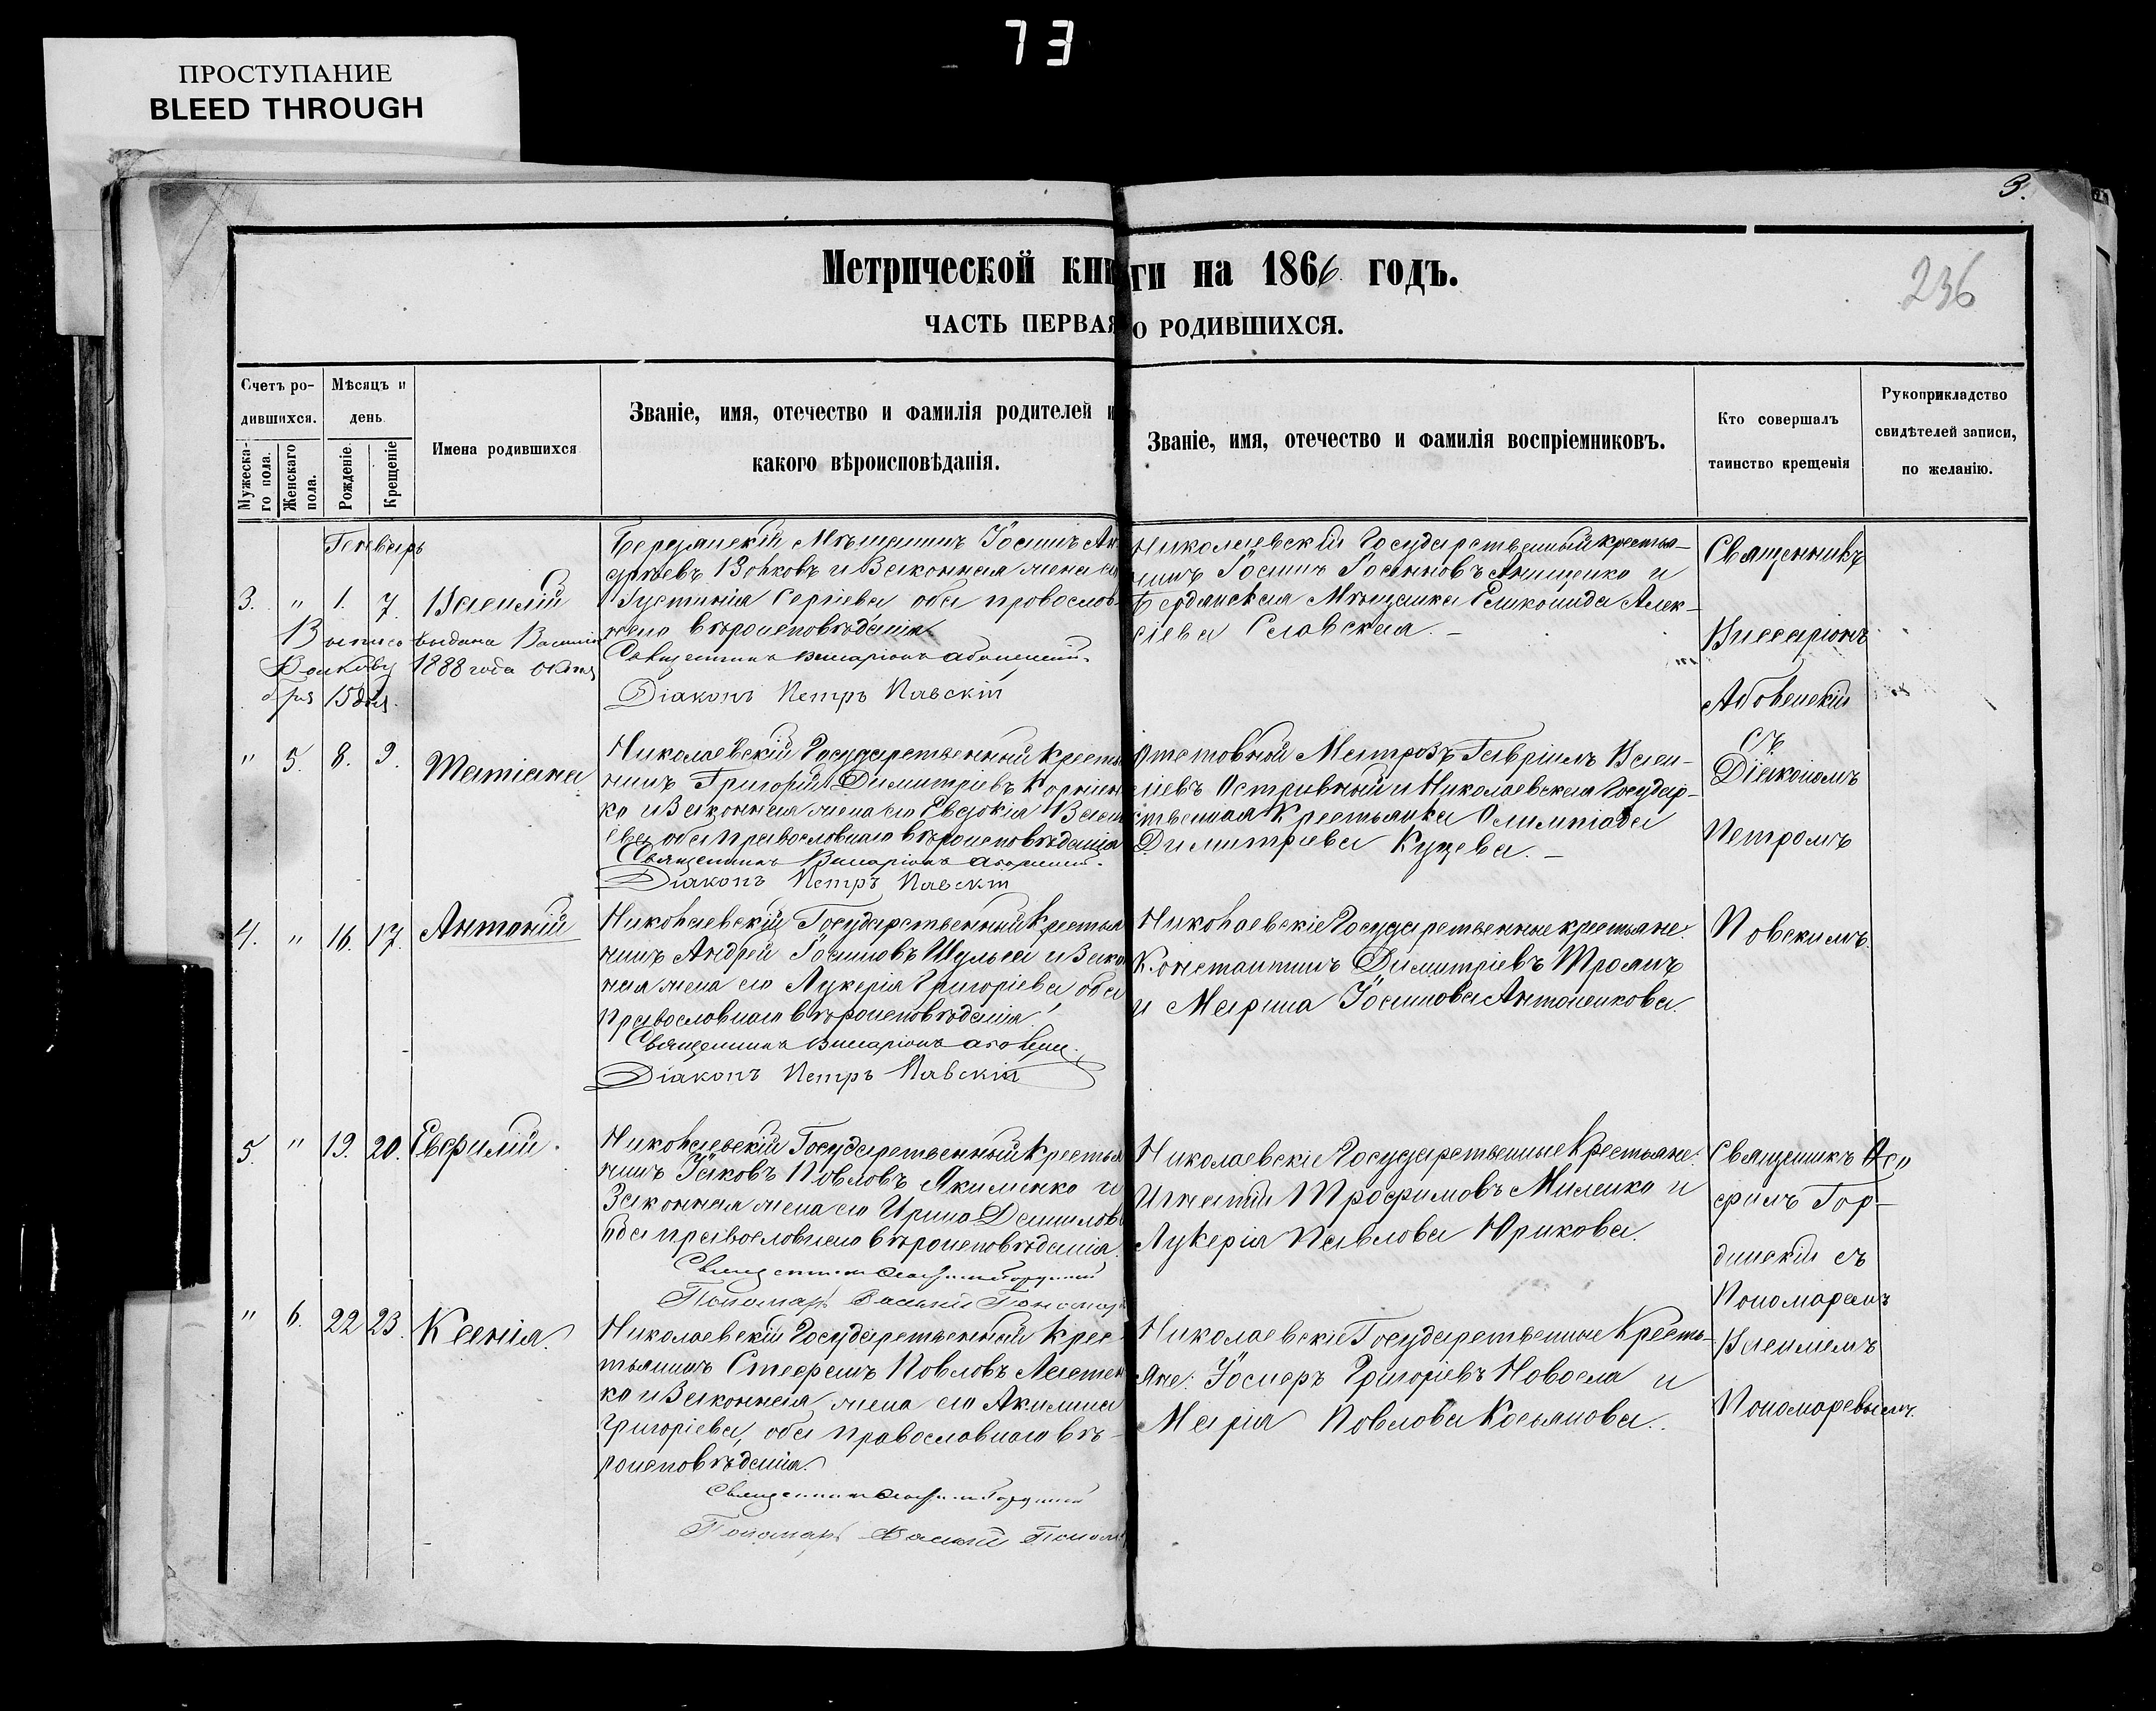 73
ПРОСТУПАНИЕ
BLEED THROUGH
3.
236
Метрической книги на 1866 годъ.
ЧАСТЬ ПЕРВАЯ О РОДИВШИХСЯ.
Счетъ ро-
дившихся.
Мужеска-
го пола.
Женскаго
пола.
Мѣсяцъ и
день
Рожденіе.
Крещеніе
Имена родившихся
Званіе, имя, отечество и фамилія родителей и
какого вѣроисповѣданія.
Званіе, имя, отечество и фамилія воспріемниковъ.
Кто совершалъ
таинство крещенія
Рукоприкладство
свидѣтелей записи,
по желанію.
Генварь
3. " 1. 7. Василій
Выпись выдана Василію
Волкову 1888 года октя
бря 15 дня.
Мѣщанинъ Іоаннъ Ан
дреевъ Волковъ и Законная жена его
Іустинія Сергіева оба провослов
наго вѣроисповѣданія
Священникъ Виссаріонъ
Діаконъ Петръ Павскій
Николаевскій Государственный крестья-
нинъ Іоаннъ Іоанновъ Анищенко и
Бердянская Мѣщанка Алек-
сіева Славская. -
Священникъ
Виссаріонъ
Абовенскій
съ
Діакономъ
Петромъ
Повскимъ.
" 5. 8. 9. Татіана
Николаевскій Государственный Крестья
нинъ Григорій Димитріевъ Корніен
ко и Законная жена его Евдокія Васи
ева оба православнаго вѣроисповѣданія
Священникъ Виссаріонъ
Діаконъ Петръ Павскій
Отставной Матрозъ Гавріилъ Васи-
ліевъ Остривный и Николаевская Государ-
ственная Крестьянка Олимпіада
Димитріева Куцева. -
4. " 16. 17. Антоній
Николаевскій Государственный Крестья
нинъ Андрей Іоанновъ Шульга и Зако
ная жена его Лукерія Григоріева, оба
православнаго вѣроисповѣданія.
Священникъ Виссаріонъ
Діаконъ Петръ Павскій
Николаевскіе Государственные крестьяне.
Константинъ Димитріевъ Троянъ
и Марина Іоаннова Антоненкова.
5. " 19. 20. Евфимій.
Николаевскій Государственный Крестья
нинъ Іаковъ Повловъ Якименко и
Законная жена его Ирина Данилова
оба православнаго вѣроисповѣданія.
Священникъ
Пономарь Василій Пономар
Николаевскіе Государственные Крестьяне.
Игнатій Трофимовъ Миленко и
Лукерія Павлова Юрикова.
Священникъ Осі
филъ Гор-
динскій съ
Пономаремъ
Василіемъ
Пономаревымъ.
" 6. 22 23. Ксенія.
Николаевскій Государственный Крес
тьянинъ Стефанъ Повловъ Ластен
ко и Законная жена его Акилина
Григоріева, оба православнаго вѣ-
роисповѣданія.
Священникъ
Пономарь Василій Поном
Николаевскіе Государственные Кресть-
яне: Іосифъ Григоріевъ Новосла и
Марія Повлова Косьянова.